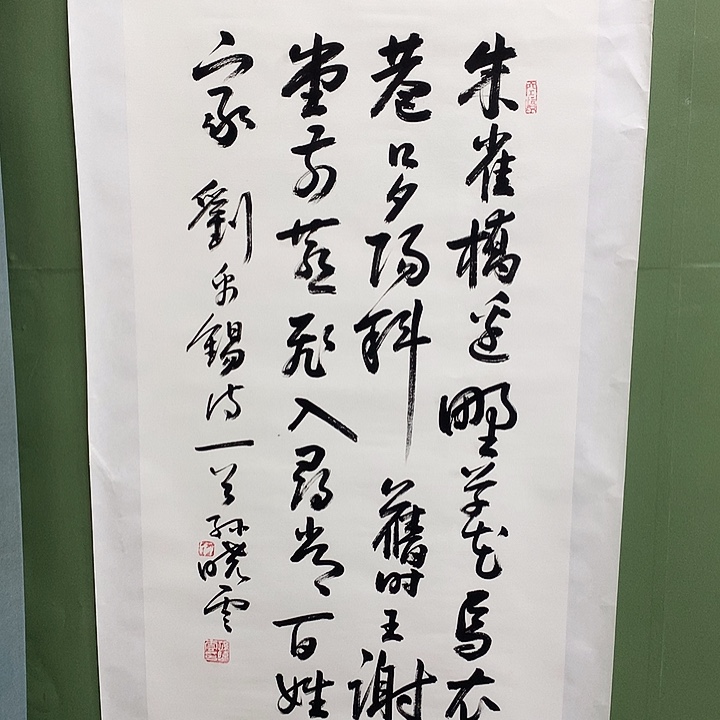 朱雀橋邊野草花烏衣
巷口夕陽斜舊時王謝
堂前燕飛入尋常百姓
家 劉禹錫詩一首孫曉雲